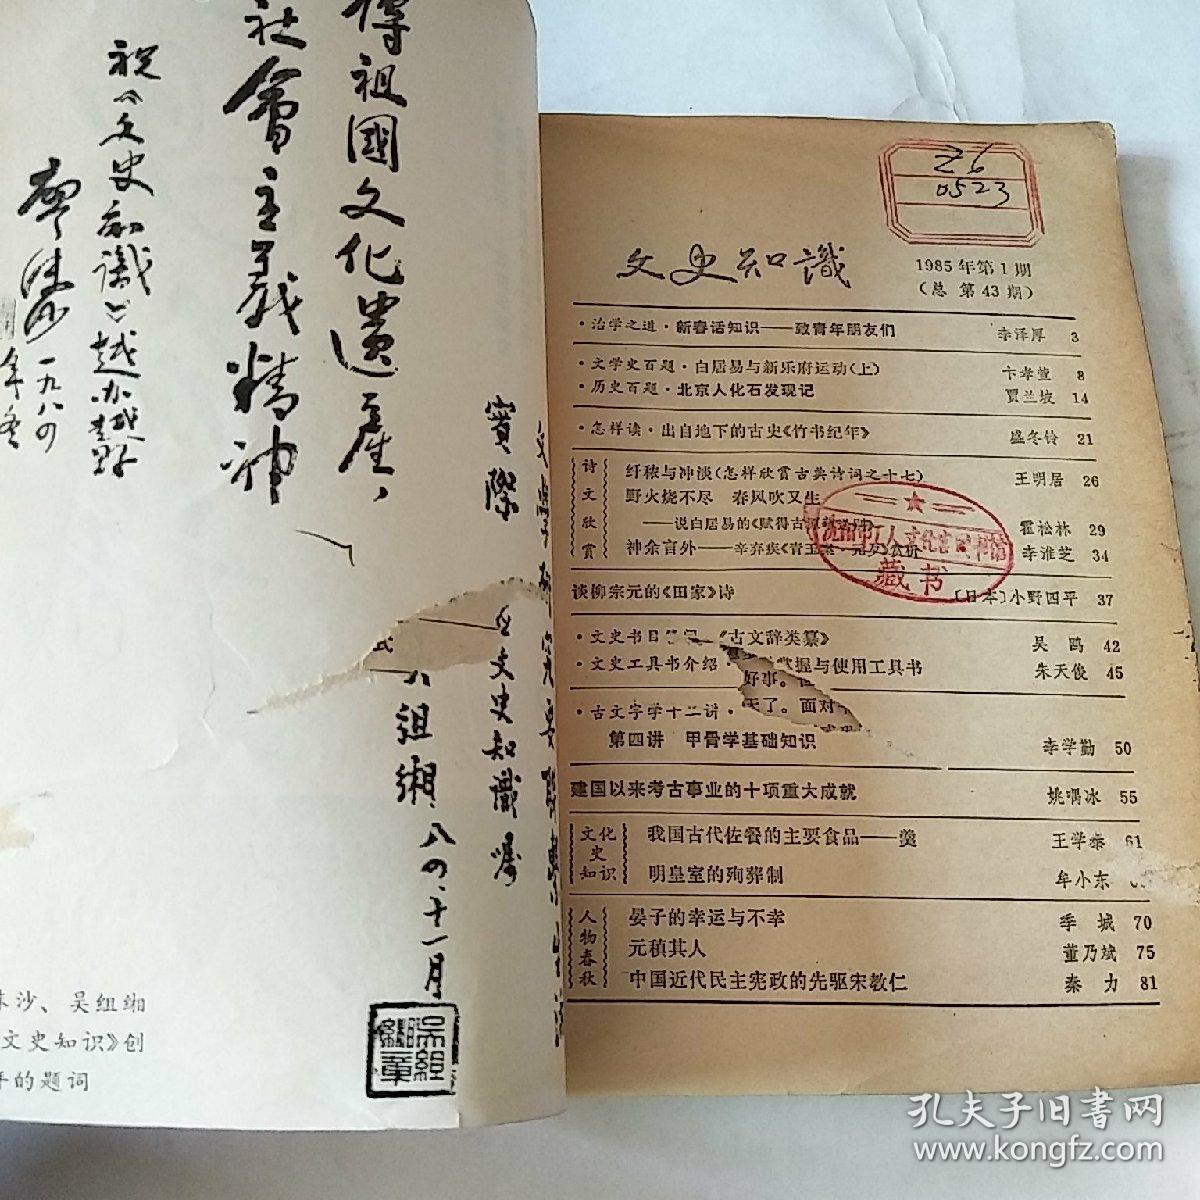 得祖國文化遺産，
社會主義精神
祝《文史知識》越办越好
廖沫沙
一九八四年冬
實際
文史知識
吴组缃 八四、十一月
沫沙、吴组缃
文史知识》创
年的题词
Z6
0523
文史知識
1985年第1期
(总 第43期)
·治学之道·新春话知识——致青年朋友们 李泽厚 3
·文学史百题·白居易与新乐府运动(上) 卞孝萱 8
·历史百题·北京人化石发现记 贾兰坡 14
·怎样读·出自地下的古史《竹书纪年》 盛冬铃 21
诗文欣赏
纤秾与冲淡(怎样欣赏古典诗词之十七) 王明居 26
野火烧不尽 春风吹又生
——说白居易的《赋得古原草送别》 霍松林 29
神余言外——辛弃疾《青玉案·元夕》赏析 李淮芝 34
工人文化宫图书馆
藏书
谈柳宗元的《田家》诗 〔日本〕小野四平 37
·文史书目 《古文辞类纂》 吴鸥 42
·文史工具书介绍· 掌握与使用工具书 朱天俊 45
好事。
天了。面对
·古文字学十二讲·
第四讲 甲骨学基础知识 李学勤 50
建国以来考古事业的十项重大成就 姚喁冰 55
文化史知识
我国古代佐餐的主要食品——羹 王学泰 61
明皇室的殉葬制 牟小东
人物春秋
晏子的幸运与不幸 季城 70
元稹其人 董乃斌 75
中国近代民主宪政的先驱宋教仁 秦力 81
孔夫子旧书网
www.kongfz.com